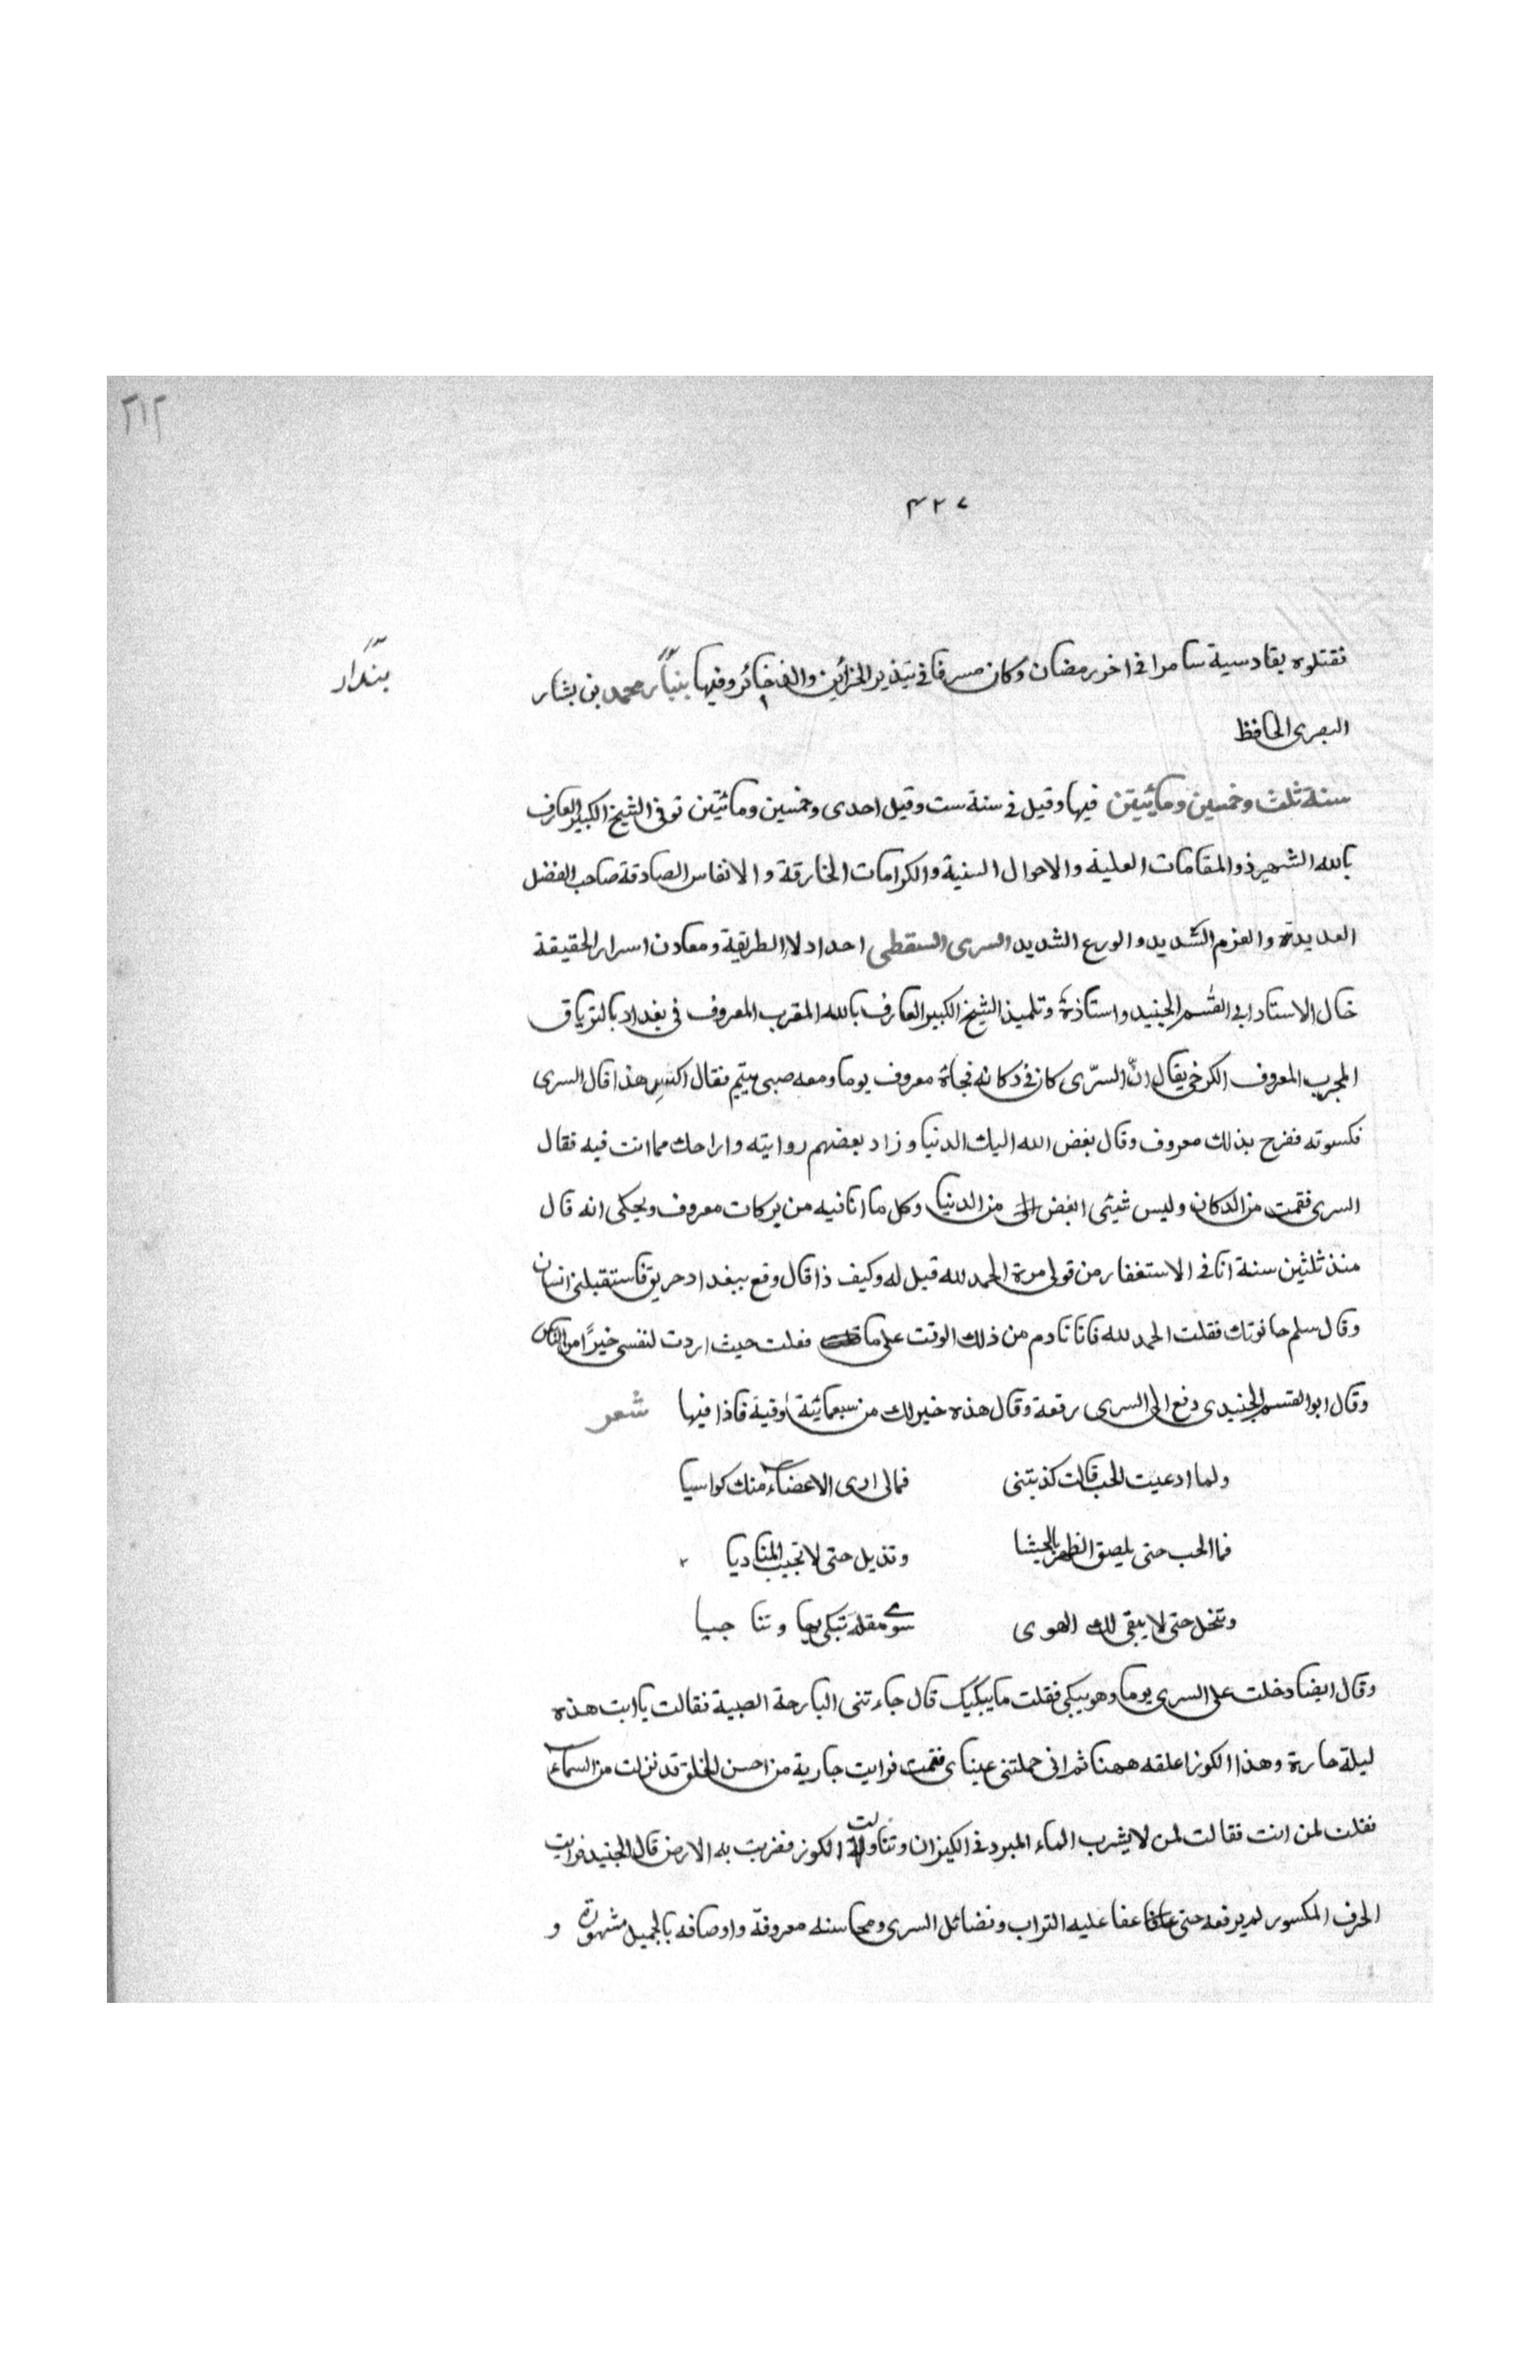 ٢١٢
٤٢٧
فقتلوه بقادسية سامرا في اخر رمضان وكان مسرفا في تبذير الخزائن والذخائر وفيها بنيار محمد بن بشار
بندار
البصرى الحافظ
سنة ثلث وخمسين ومائيتن فيها وقيل في سنة ست وقيل احدى وخمسين ومائيتن توفى الشيخ الكبير العارف
بالله الشهير ذو المقامات العلية والاحوال السنية والكرامات الخارقة والانفاس الصادقة صاحب الفضل
العديدة والعزم الشديد والورع الشديد السرى السقطى احد ادلا الطريقة ومعادن اسرار الحقيقة
خال الاستاد ابي القسم الجنيد واستاذة وتلميذ الشيخ الكبير العارف بالله المقرب المعروف في بغداد بالترياق
المجرب المعروف الكرخى يقال انّ السرّى كان في دكانه فجاة معروف يوما ومعه صبى يتيم فقال اكسِ هذا قال السرى
فكسوته ففرح بذلك معروف وقال بغض الله اليك الدنيا وزاد بعضهم روايته واراحك مما انت فيه فقال
السرى فقمت من الدكان وليس شيئى ابغض الى من الدنيا وكل ما انا فيه من بركات معروف ويحكى انه قال
منذ ثلثين سنة انا في الاستغفار من قولى مرة الحمد لله قيل له وكيف ذا قال وقع ببغداد حريق فاستقبلنى انسان
وقال سلم حانوتك فقلت الحمد لله فانا نادم من ذلك الوقت على ما فعلت حيث اردت لنفسى خيرًا من الناس
وقال ابو القسم الجنيدى دفع الى السرى رقعة وقال هذه خير لك من سبعمائة اوقية فاذا فيها شعر
ولما ادعيت الحب قالت كذبتنى فمالى ارى الاعضاء منك كواسيا
فما الحب حتى يلصق الظهر بالحيشا وتذبل حتى لا تجيب المناديا
وتنحل حتى لا يبقى لك الهوى سوى مقلة تبكى بها وتناجيا
وقال ايضا دخلت على السرى يوما وهو يبكى فقلت ما يبكيك قال جاءتنى البارحة الصبية فقالت يا ابت هذه
ليلة حارة وهذا الكوز اعلقه ههنا ثم انى حملتنى عيناى فقمت فرايت جارية من احسن الخلق قد نزلت من السماء
فقلت لمن انت فقالت لمن لا يشرب الماء المبرد في الكيزان وتناولت الكوز فضربت به الارض قال الجنيد فرايت
الخرف المكسور لم يرفعه حتى عفا عليه التراب وفضائل السرى ومحاسنه معروفة واوصافه بالجميل مشهورة و